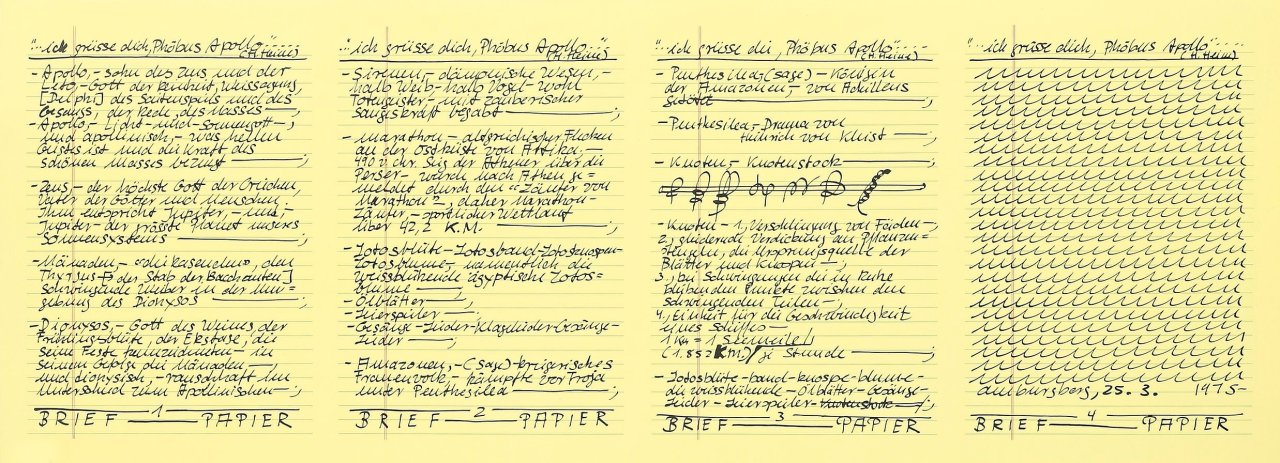 "...ich grüsse dich, Phöbus Apollo"......
(H. Heine)
- Apollo, - sohn des Zeus und der
Leto, - Gott der Reinheit, Weissagung,
[Delphi] des Saitenspiels und des
Gesangs, der Rede, des Masses ;
- Apollo, - Licht - und - Sonnengott - ;
und apollinisch - was hellen
Geistes ist und die Kraft des
schönen Masses bezeugt ;
- Zeus, - der höchste Gott der Griechen,
Vater der Götter und Menschen.
Ihm entspricht Jupiter, - und, -
Jupiter - der grösste Planet unseres
Sonnensystems ;
- Mänaden, - «die Rasenden», den
Thyrsus - [des Stab der Bachanten]
schwingende Weiber in der Um =
gebung des Dionysos ;
- Dionysos, - Gott des Weines, der
Frühlingsblüte, der Ekstase, die
seine Feste kennzeichneten - in
seinem Gefolge die Mänaden
und dionysisch, - rauschhaft im
Unterschied zum Apollinischen ;
BRIEF 1 PAPIER
"...ich grüsse dich, Phöbus Apollo..."
(H. Heine)
- Sirenen, - dämonische Wesen, -
halb Weib - halb Vogel - wohl
Totengeister - mit zauberischer
Sangeskraft begabt ;
- Marathon, - altgriechischer Flecken
an der Ostküste von Attika. -
490 v. Chr. Sieg der Athener über die
Perser - wurde nach Athen ge =
meldet durch den «Läufer von
Marathon», daher Marathon-
Läufer, - sportlicher Wettlauf
über 42,2 K.M.
- Lotosblüte - Lotosband - Lotosknospen-
Lotosblume, - namentlich die
weissblühende ägyptische Lotos =
blume ;
- Ölblätter ;
- Leierspieler ;
- Gesänge - Lieder - Klagelieder - Gesänge -
Lieder ;
- Amazonen, - (Sage) - kriegerisches
Frauenvolk, - kämpfte vor Troja
unter Penthesilea ;
BRIEF 2 PAPIER
"...ich grüsse die, Phöbus Apollo".....
(H. Heine)
- Penthesilea, (Sage) - Königin
der Amazonen, - von Achilleus
getötet ;
- Penthesilea, - Drama von
Heinrich von Kleist ;
- Knoten, - Knotenstock ;
- Knoten - 1, Verschlingung von Fäden - ;
2, gliedernde Verdickung an Pflanzen =
stengeln, die Ursprungsstelle der
Blätter und Knospen - ;
3, bei Schwingungen die in Ruhe
bleibenden Punkte zwischen den
schwingenden Teilen - ;
4, Einheit für die Geschwindigkeit
eines Schiffes -
1 Kn = 1 Seemeile/
(1.852 KM,)/je Stunde ;
- Lotosblüte - band - knospe - blume -
die weissblühende - Ölblätter - Gesänge -
Lieder - Leierspieler - Knotenstock - ;
BRIEF 3 PAPIER
"...ich grüsse dich, Phöbus Apollo"....
(H. Heine)
25. 3. 1975-
BRIEF 4 PAPIER